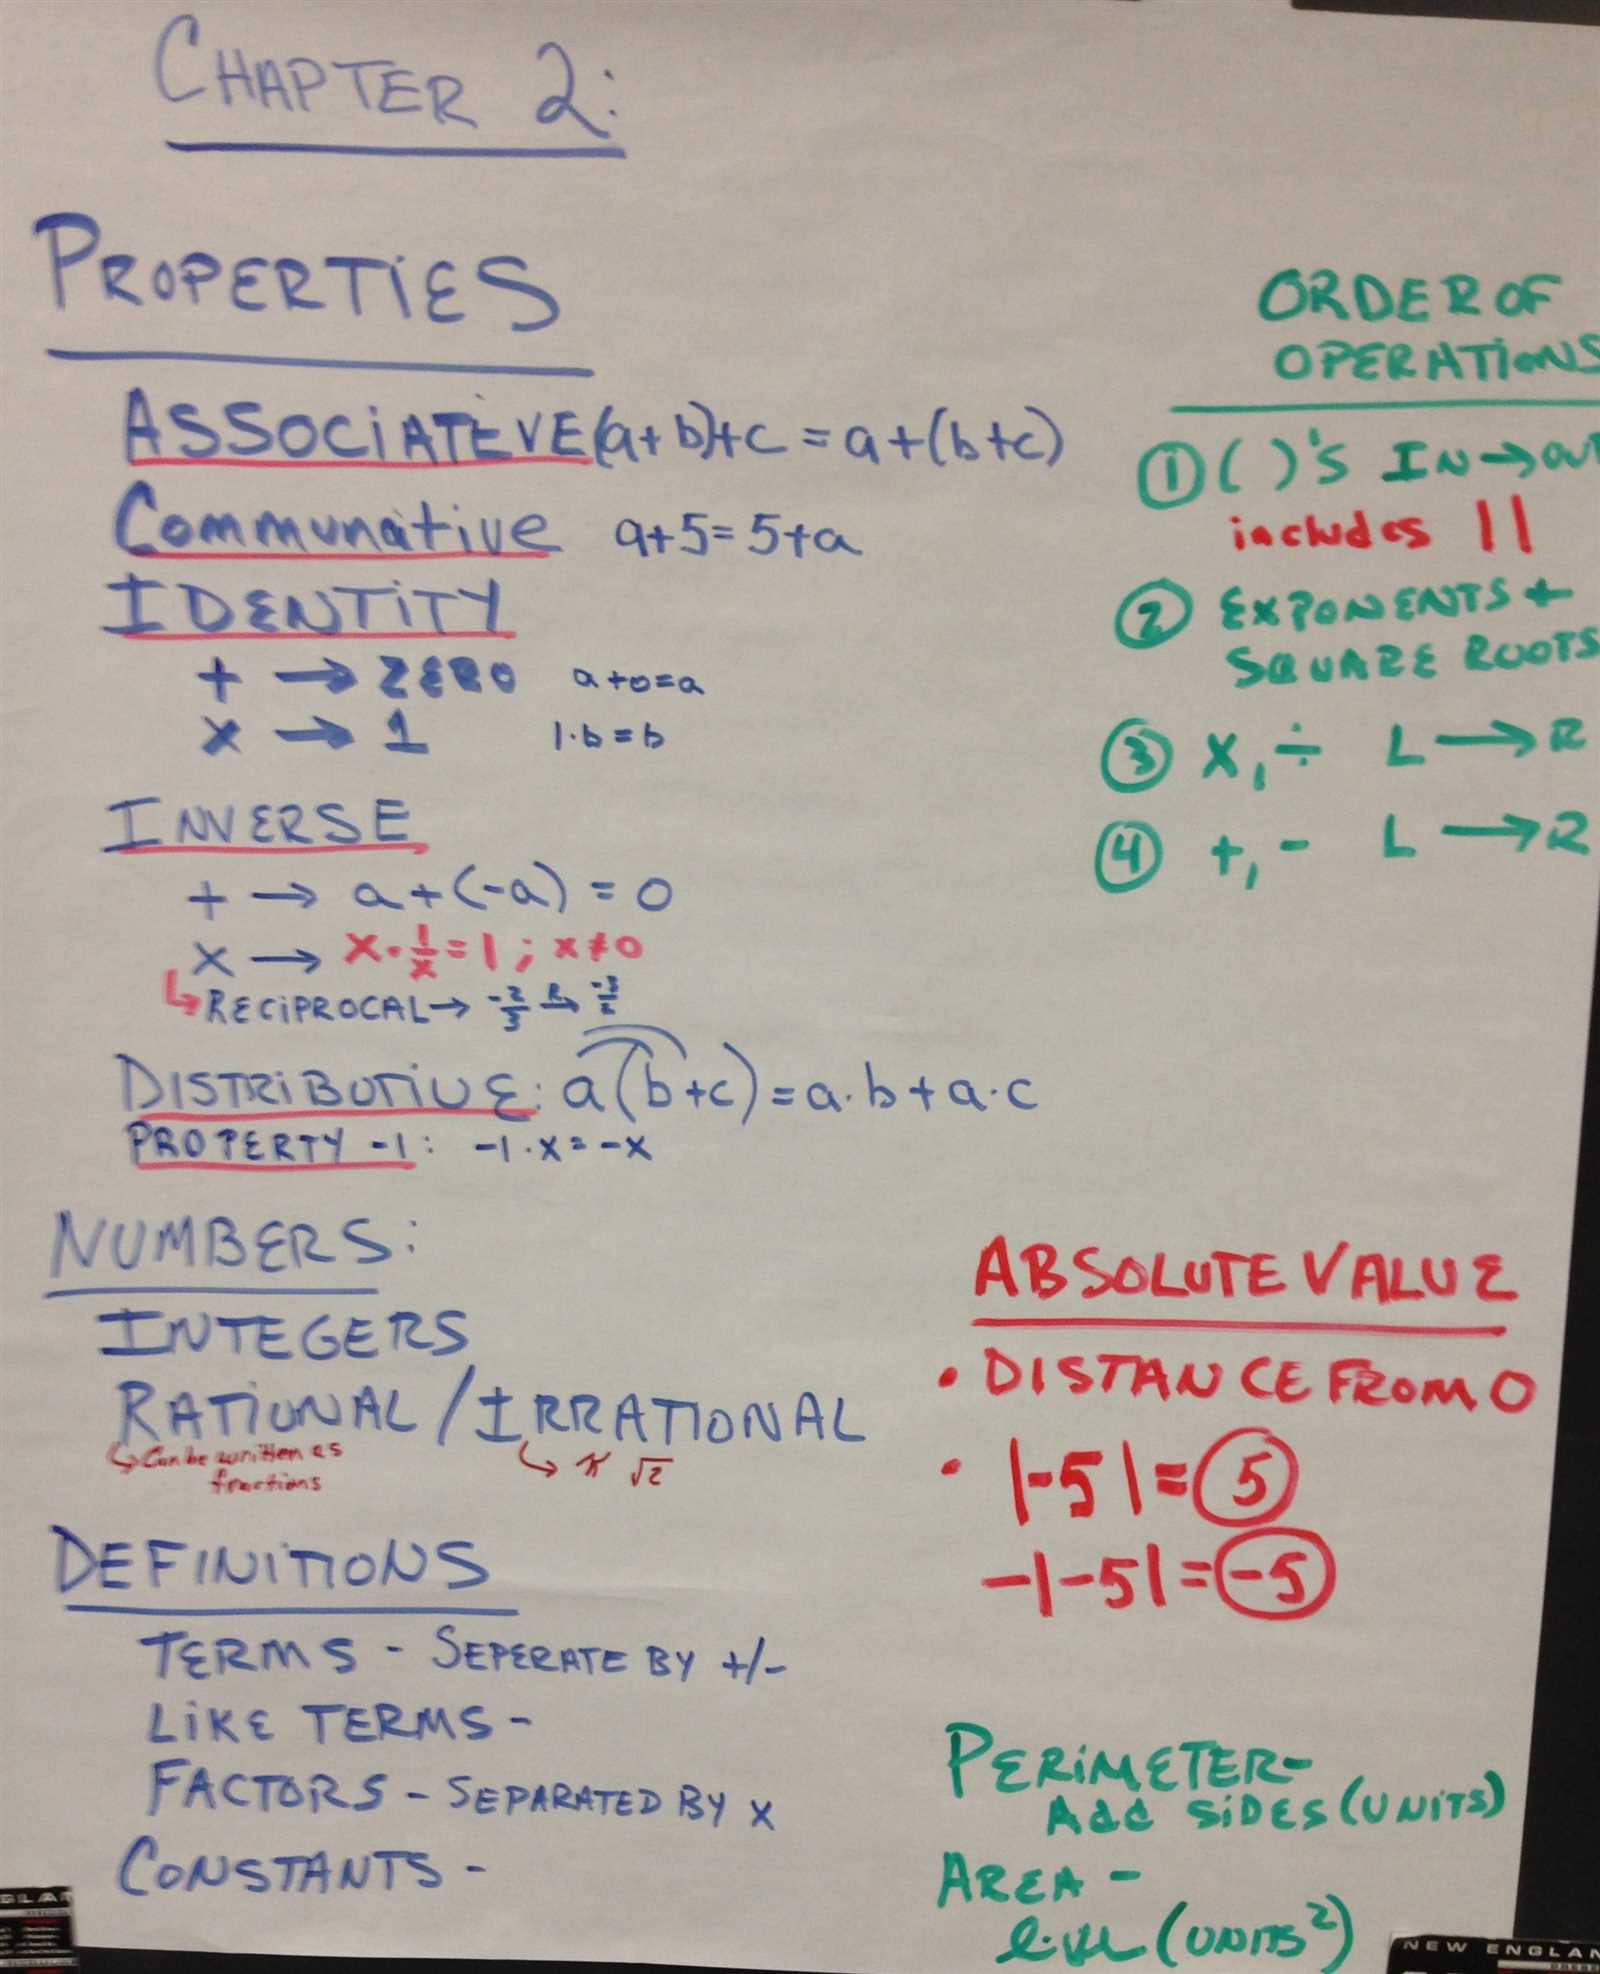 CHAPTER 2:
PROPERTIES
ASSOCIATEVE (a+b)+c = a+(b+c)
Communative a+5=5+a
IDENTITY
+ → ZERO a+0=a
x → 1 1·b=b
INVERSE
+ → a+(-a) = 0
x → x·1/x=1; x≠0
↳ RECIPROCAL → -2/3 R→ -3/2
DISTRIBUTIVE: a(b+c)=a·b+a·c
PROPERTY -1: -1·x=-x
NUMBERS:
INTEGERS
RATIONAL/IRRATIONAL
↳ Can be written as ↳ π √2
fractions
DEFINITIONS
TERMS - SEPERATE BY +/-
LIKE TERMS -
FACTORS - SEPARATED BY x
CONSTANTS -
ORDER OF
OPERATIONS
① ( )'s IN→OUT
includes ||
② EXPONENTS +
SQUARE ROOTS
③ x, ÷ L→R
④ +, - L→R
ABSOLUTE VALUE
• DISTANCE FROM 0
• |-5|=5
-|-5|=-5
PERIMETER-
Add SIDES (UNITS)
AREA -
(UNITS²)
NEW ENGLAN